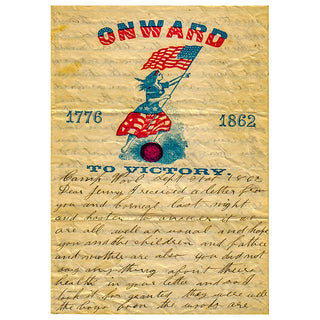 ONWARD
1776 1862
TO VICTORY.
Camp Sept 1862
Dear Jenny I received a letter from
you and last night
and hasten to answer it we
are all well as usual and hope
you and the children and father
and mother are also you did not
say anything about their
health in your letter and will
took it for granted they were well
the boys the woods are